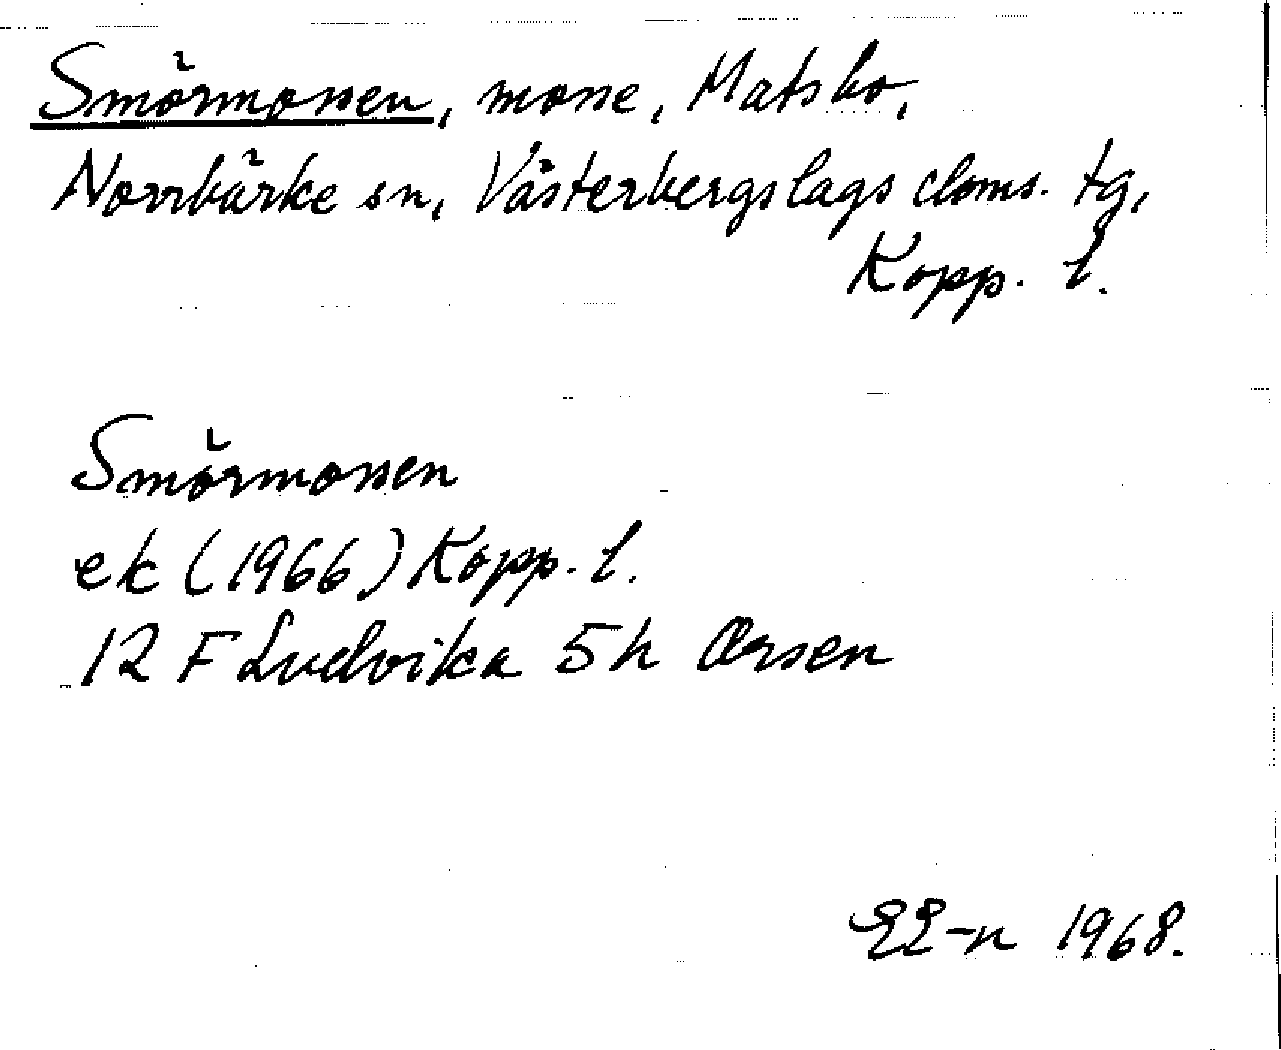 Smörmossen, mosse, Matsbo,
Norrbärke sn, Västerbergslags doms. tg,
Kopp. l.
Smörmossen
ek (1966) Kopp. l.
12 F Ludvika 5h Orsen
EE-n 1968.